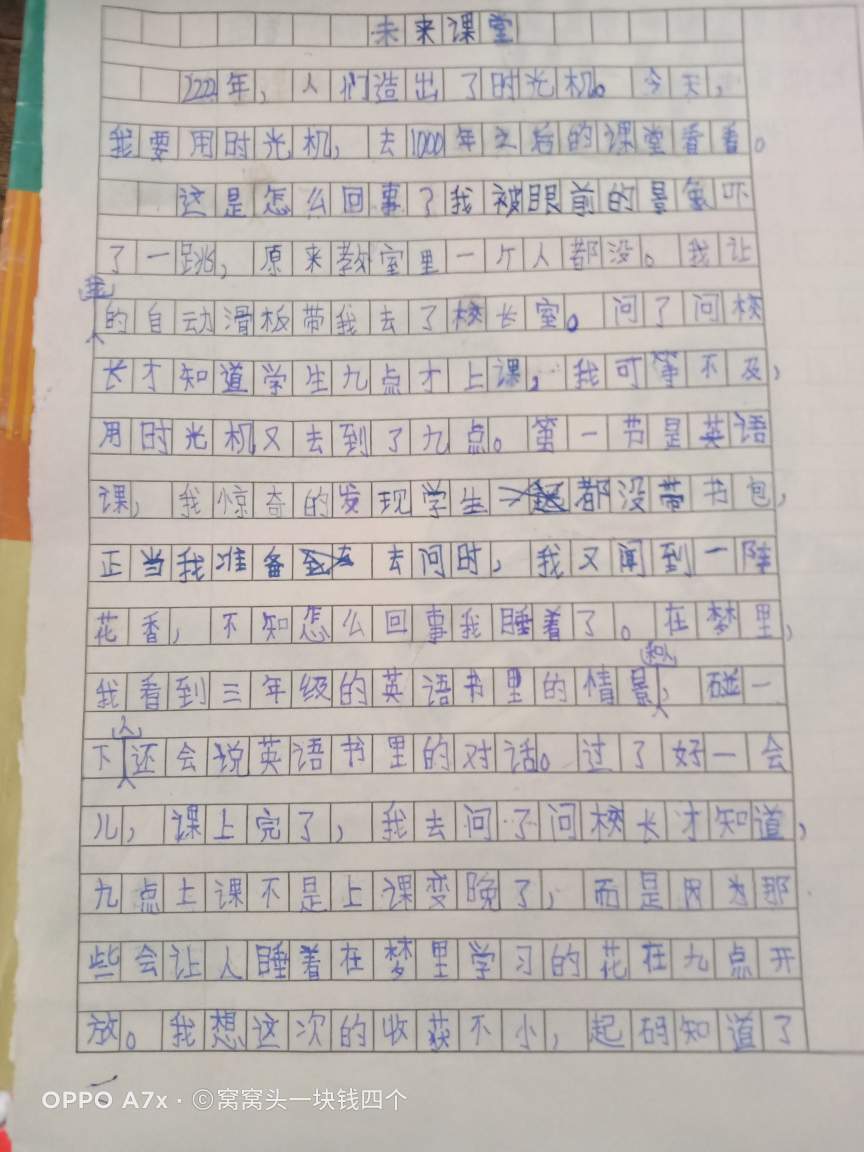 未来课堂
2222年，人们造出了时光机。今天，
我要用时光机，去1000年之后的课堂看看。
这是怎么回事？我被眼前的景象吓
了一跳，原来教室里一个人都没。我让
我的自动滑板带我去了校长室。问了问校
长才知道学生九点才上课，我可等不及，
用时光机又去到了九点。第一节是英语
课，我惊奇的发现学生都没带书包，
正当我准备去问时，我又闻到一阵
花香，不知怎么回事我睡着了。在梦里，
我看到三年级的英语书里的情景，碰一
下人还会说英语书里的对话。过了好一会
儿，课上完了，我去问了问校长才知道，
九点上课不是上课变晚了，而是因为那
些会让人睡着在梦里学习的花在九点开
放。我想这次的收获不小，起码知道了
OPPO A7x · ©窝窝头一块钱四个